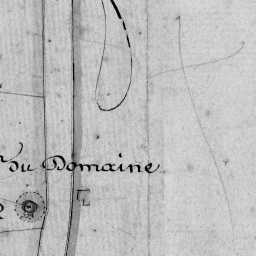 du Domaine